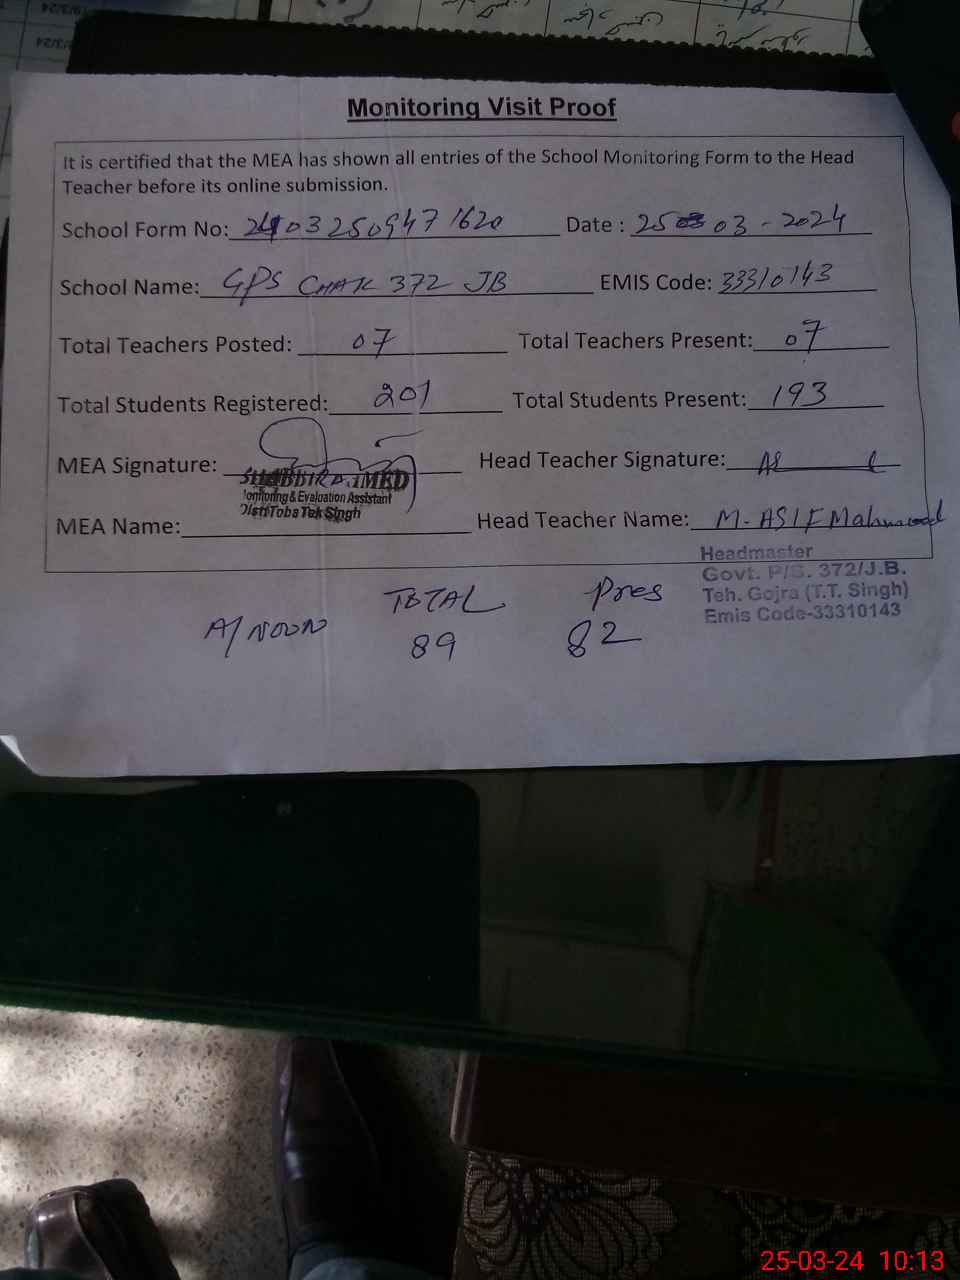 Monitoring Visit Proof
It is certified that the MEA has shown all entries of the School Monitoring Form to the Head
Teacher before its online submission.
School Form No: 2403250947 1620 Date : 25 03 - 2024
School Name: GPS CHAK 372 JB EMIS Code: 33310143
Total Teachers Posted: 07 Total Teachers Present: 07
Total Students Registered: 201 Total Students Present: 193
MEA Signature: Head Teacher Signature:
SHABBIR AHMED
Monitoring & Evaluation Assistant
Distt Toba Tek Singh
MEA Name: Head Teacher Name: M. ASIF Mahmood
Headmaster
Govt. P/S. 372/J.B.
Teh. Gojra (T.T. Singh)
Emis Code-33310143
TOTAL Pres
A/NOON 89 82
25-03-24 10:13